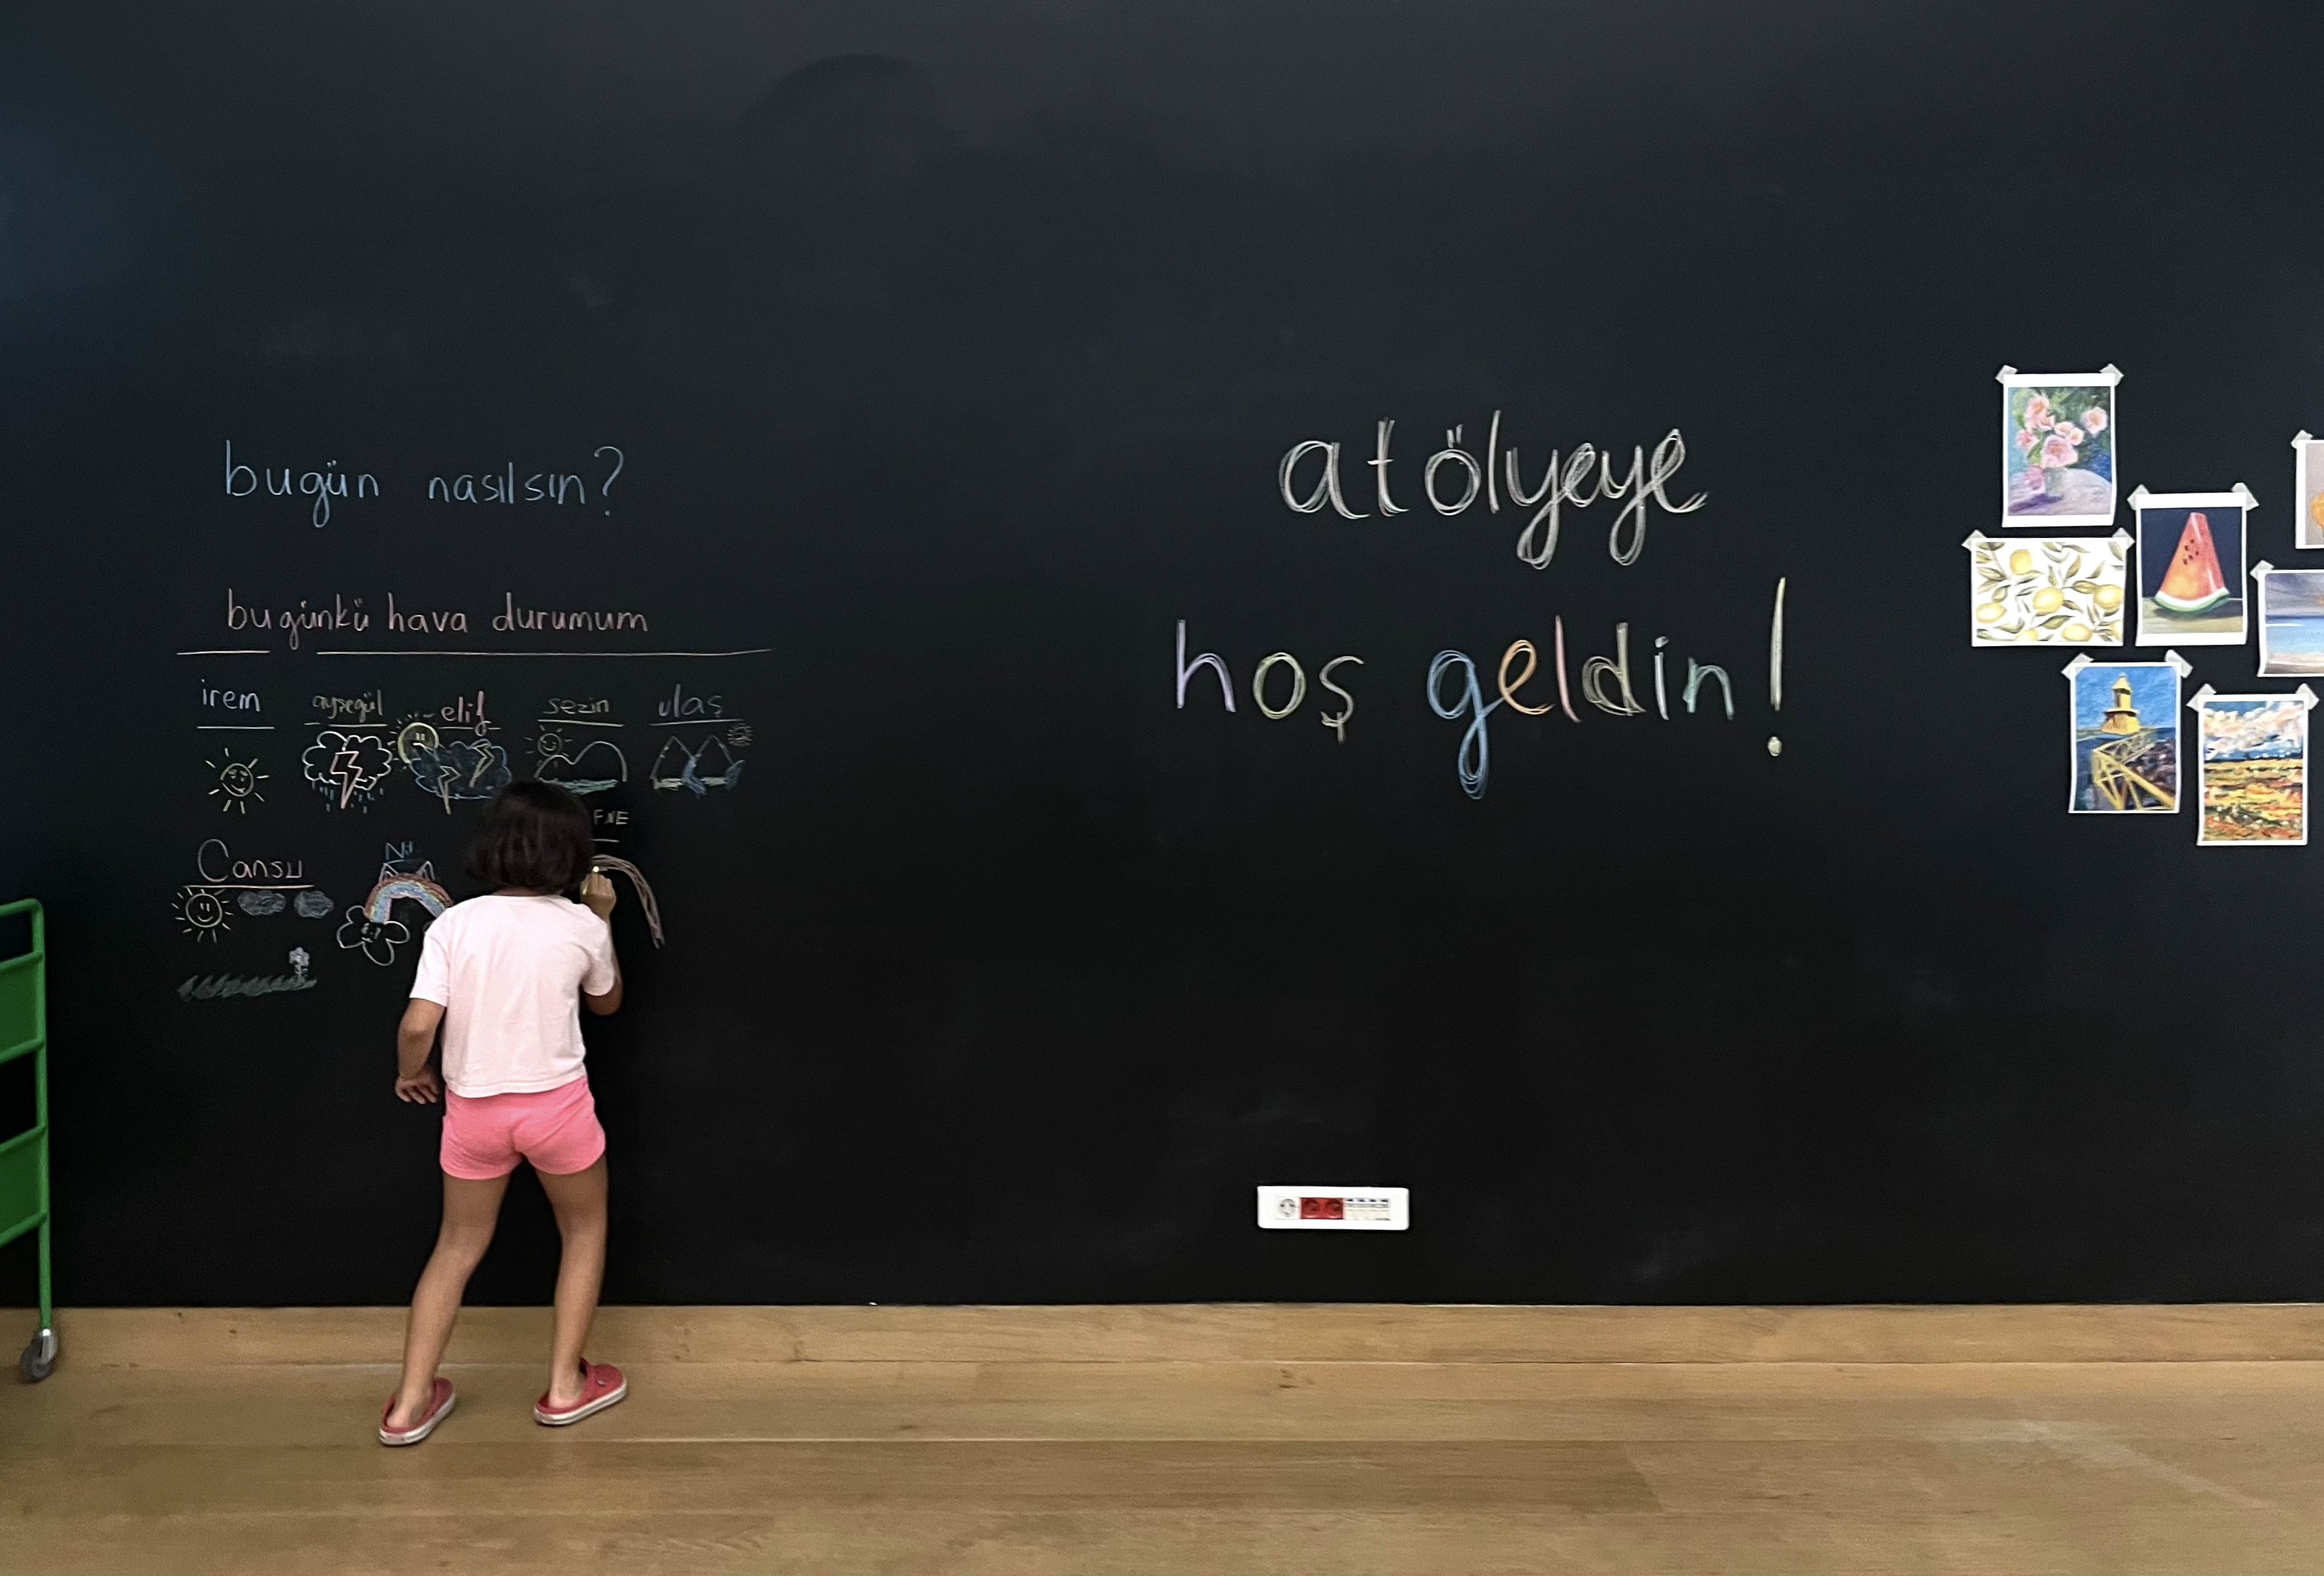 bugün nasılsın?
bugünkü hava durumum
irem ayşegül elif sezin ulaş
Cansu Nil
atölyeye
hoş geldin!